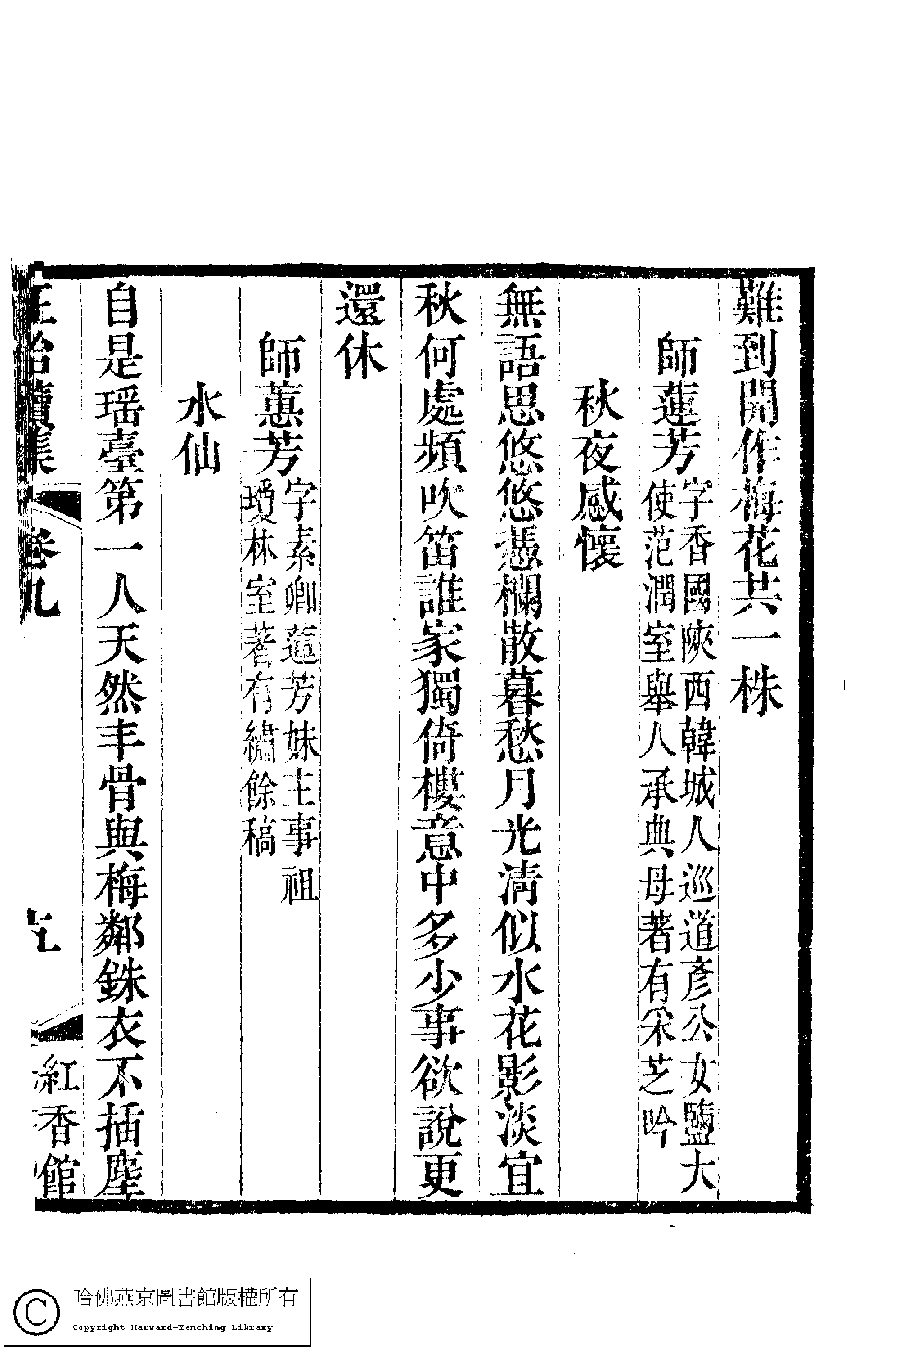 難到開作梅花共一株
師蓮芳
字香國陝西韓城人巡道彥公女鹽大
使范潤室舉人承典母著有采芝吟
秋夜感懷
無語思悠悠憑欄散暮愁月光清似水花影淡宜
秋何處頻吹笛誰家獨倚樓意中多少事欲說更
還休
師蕙芳
字素卿蓮芳妹主事祖
璦林室著有繡餘稿
水仙
自是瑶臺第一人天然丰骨與梅鄰銖衣不插塵
正始續集 卷九
紅香館
哈佛燕京圖書館版權所有
Copyright Harvard-Yenching Library